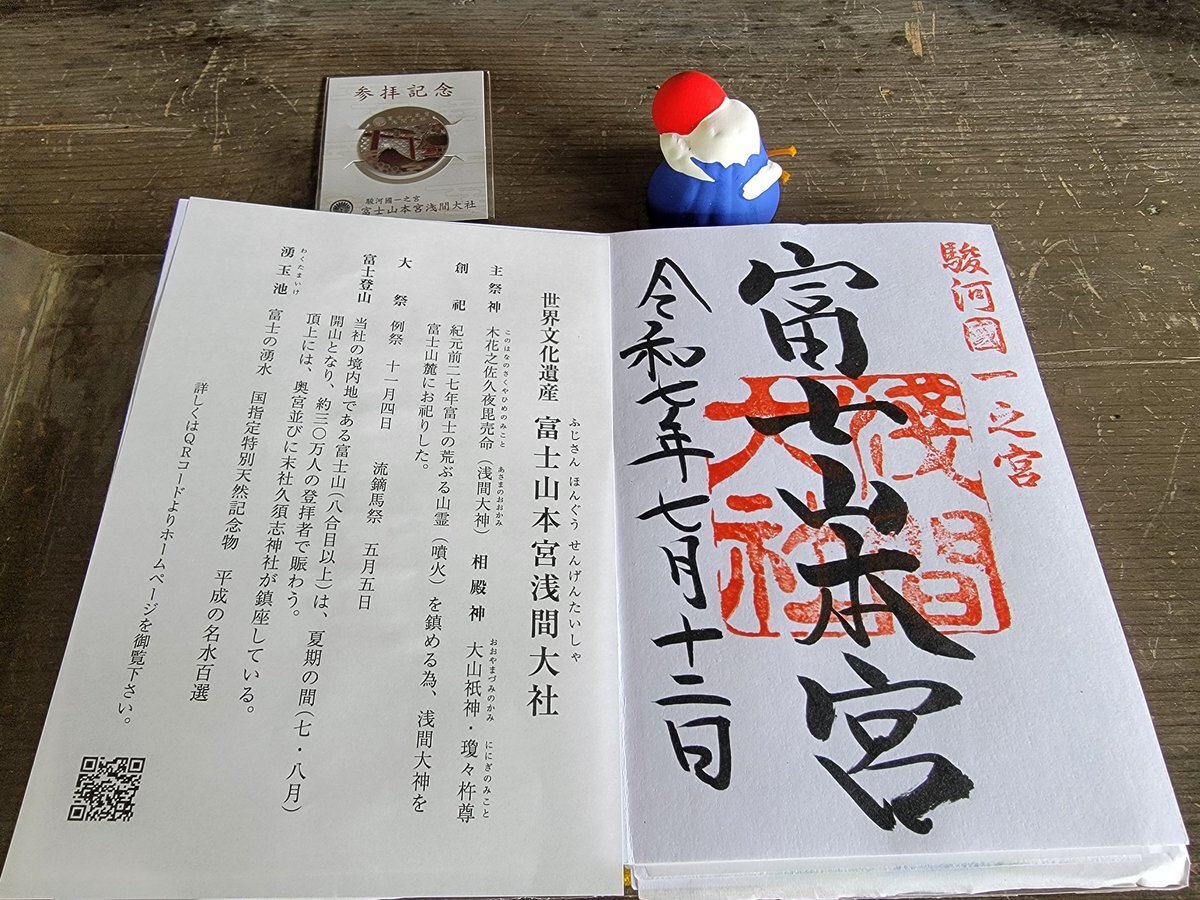 参拝記念
駿河國一之宮
富士山本宮浅間大社
駿河國一之宮
富士山本宮
浅間
大社
令和七年七月十二日
世界文化遺産 富士山本宮浅間大社
ふじさん ほんぐう せんげんたいしゃ
主祭神 木花之佐久夜毘売命(浅間大神) 相殿神 大山祇神・瓊々杵尊
このはなのさくやひめのみこと あさまのおおかみ おおやまづみのかみ ににぎのみこと
創祀 紀元前二七年富士の荒ぶる山霊(噴火)を鎮める為、浅間大神を
富士山麓にお祀りした。
大祭 例祭 十一月四日 流鏑馬祭 五月五日
富士登山 当社の境内地である富士山(八合目以上)は、夏期の間(七・八月)
開山となり、約三〇万人の登拝者で賑わう。
頂上には、奥宮並びに末社久須志神社が鎮座している。
湧玉池 富士の湧水 国指定特別天然記念物 平成の名水百選
わくたまいけ
詳しくはQRコードよりホームページを御覧下さい。